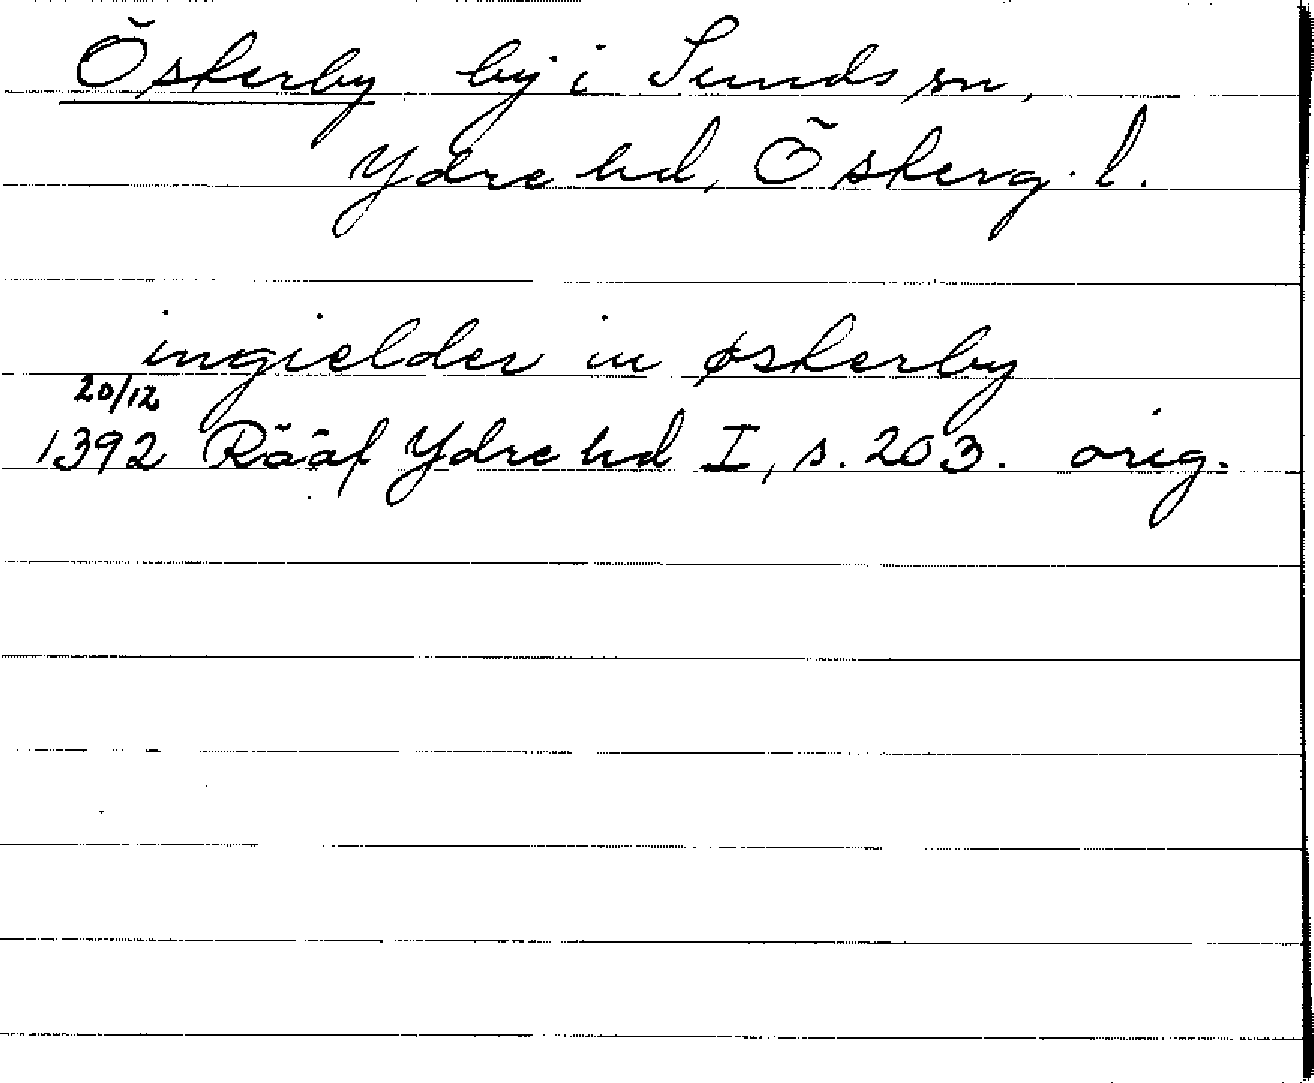 Österby by i Sunds sn,
Ydre hd, Österg. l.
ingielder in østerby
20/12
1392 Rääf Ydre hd I, s. 203. orig.